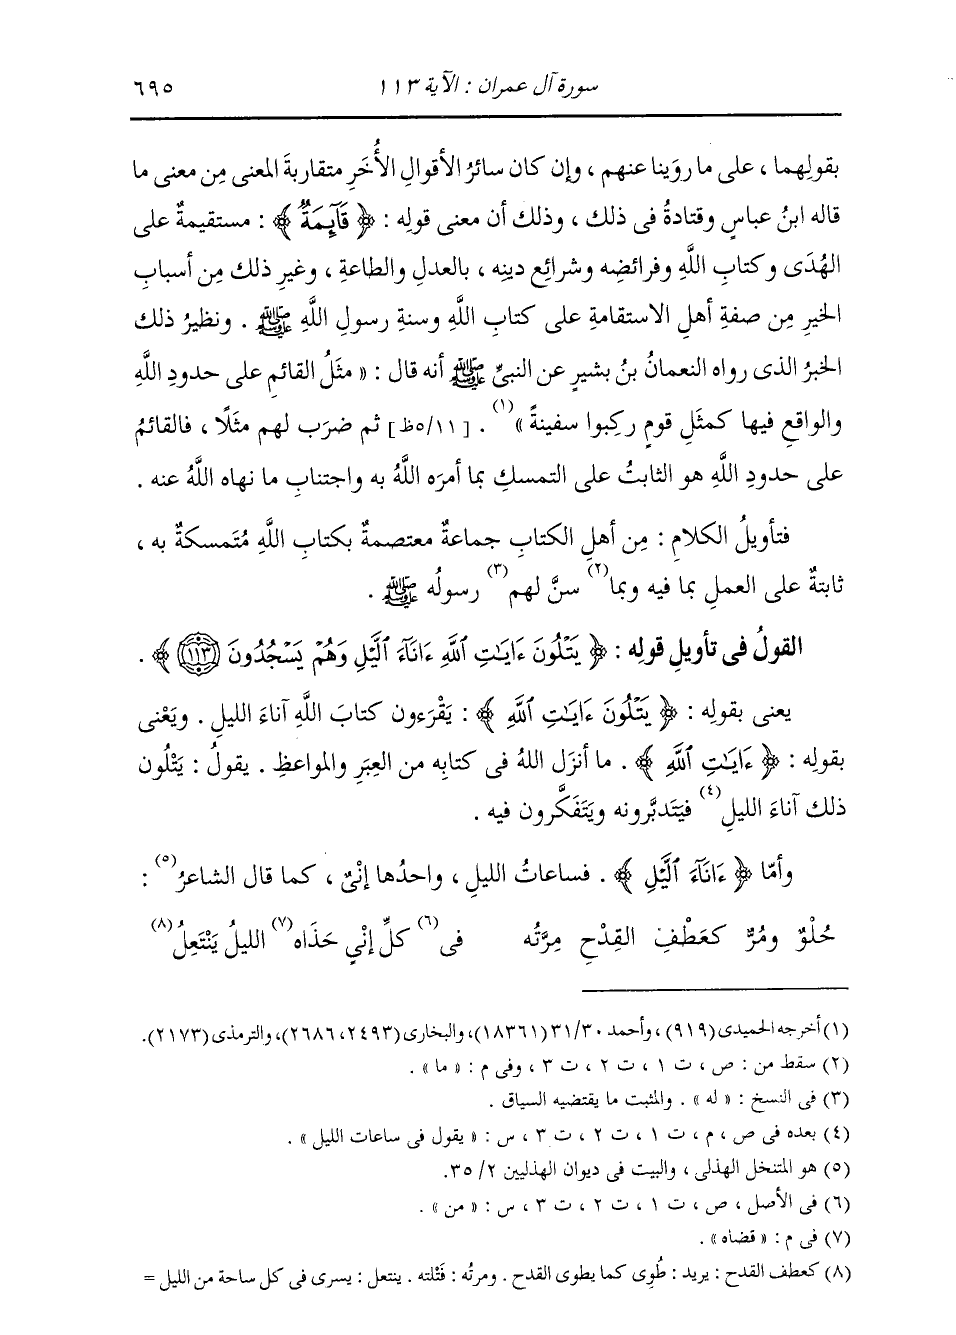 سورة آل عمران : الآية ١١٣ ٦٩٥
بقولِهما ، على ما روَينا عنهم ، وإن كان سائرُ الأقوالِ الأُخَرِ متقاربةَ المعنى مِن معنى ما
قاله ابنُ عباسٍ وقتادةُ فى ذلك ، وذلك أن معنى قولِه : ﴿ قَآئِمَةٌ ﴾ : مستقيمةٌ على
الهُدَى وكتابِ اللَّهِ وفرائضِه وشرائعِ دينِه ، بالعدلِ والطاعةِ ، وغيرِ ذلك مِن أسبابِ
الخيرِ مِن صفةِ أهلِ الاستقامةِ على كتابِ اللَّهِ وسنةِ رسولِ اللَّهِ ﷺ . ونظيرُ ذلك
الخبرُ الذى رواه النعمانُ بنُ بشيرٍ عن النبىِّ ﷺ أنه قال : « مثَلُ القائمِ على حدودِ اللَّهِ
والواقعِ فيها كمثَلِ قومٍ ركِبوا سفينةً »(١) . [١١/ ٥ظ] ثم ضرَب لهم مثَلًا ، فالقائمُ
على حدودِ اللَّهِ هو الثابتُ على التمسكِ بما أمرَه اللَّهُ به واجتنابِ ما نهاه اللَّهُ عنه .
فتأويلُ الكلامِ : مِن أهلِ الكتابِ جماعةٌ معتصمةٌ بكتابِ اللَّهِ مُتَمسكةٌ به ،
ثابتةٌ على العملِ بما فيه وبما(٢) سنَّ لهم(٣) رسولُه ﷺ .
القولُ فى تأويلِ قولِه : ﴿ يَتْلُونَ ءَايَٰتِ ٱللَّهِ ءَانَآءَ ٱلَّيْلِ وَهُمْ يَسْجُدُونَ ١١٣ ﴾ .
يعنى بقولِه : ﴿ يَتْلُونَ ءَايَٰتِ ٱللَّهِ ﴾ : يَقْرَءون كتابَ اللَّهِ آناءَ الليلِ . ويَعْنى
بقولِه : ﴿ ءَايَٰتِ ٱللَّهِ ﴾ . ما أنزَل اللهُ فى كتابِه من العِبَرِ والمواعظِ . يقولُ : يَتْلُون
ذلك آناءَ الليلِ(٤) فيَتَدبَّرونه ويَتَفَكَّرون فيه .
وأمّا ﴿ ءَانَآءَ ٱلَّيْلِ ﴾ . فساعاتُ الليلِ ، واحدُها إنْىٌ ، كما قال الشاعرُ(٥) :
حُلْوٌ ومُرٌّ كعَطْفِ القِدْحِ مِرَّتُه فى(٦) كلِّ إنْيٍ حَذَاه(٧) الليلُ يَنْتَعِلُ(٨)
(١) أخرجه الحميدى (٩١٩) ، وأحمد ٣١/٣٠ (١٨٣٦١)، والبخارى (٢٤٩٣، ٢٦٨٦)، والترمذى (٢١٧٣).
(٢) سقط من : ص ، ت ١ ، ت ٢ ، ت ٣ ، وفى م : « ما » .
(٣) فى النسخ : « له » . والمثبت ما يقتضيه السياق .
(٤) بعده فى ص ، م ، ت ١ ، ت ٢ ، ت ٣ ، س : « يقول فى ساعات الليل » .
(٥) هو المتنخل الهذلى ، والبيت فى ديوان الهذليين ٢/ ٣٥.
(٦) فى الأصل ، ص ، ت ١ ، ت ٢ ، ت ٣ ، س : « من » .
(٧) فى م : « قضاه » .
(٨) كعطف القدح : يريد : طُوِى كما يطوى القدح . ومرتُه : فَتْلته . ينتعل : يسرى فى كل ساحة من الليل =